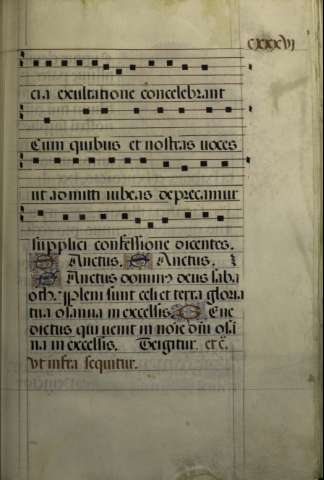 cxxxvi
cia exultatione concelebrant
Cum quibus et nostras uoces
ut admitti iubeas deprecamur
supplici confessione dicentes.
Sanctus. Sanctus.
Sanctus dominus deus saba
oth. Pleni sunt celi et terra gloria
tua osanna in excelsis. Bene
dictus qui uenit in noie dni osa
na in excelsis. Te igitur. et c̄.
Vt infra sequitur.